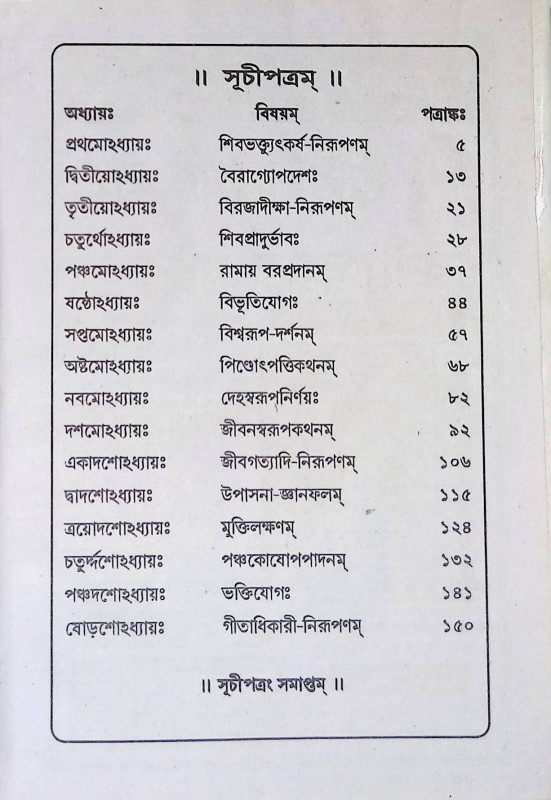 ।। সূচীপত্রম্ ।।
অধ্যায়ঃ বিষয়ম্ পত্রাঙ্কঃ
প্রথমোঽধ্যায়ঃ শিবভক্ত্যুৎকর্ষ-নিরূপণম্ ৫
দ্বিতীয়োঽধ্যায়ঃ বৈরাগ্যোপদেশঃ ১৩
তৃতীয়োঽধ্যায়ঃ বিরজাদীক্ষা-নিরূপণম্ ২১
চতুর্থোঽধ্যায়ঃ শিবপ্রাদুর্ভাবঃ ২৮
পঞ্চমোঽধ্যায়ঃ রামায় বরপ্রদানম্ ৩৭
ষষ্ঠোঽধ্যায়ঃ বিভূতিযোগঃ ৪৪
সপ্তমোঽধ্যায়ঃ বিশ্বরূপ-দর্শনম্ ৫৭
অষ্টমোঽধ্যায়ঃ পিণ্ডোৎপত্তিকথনম্ ৬৮
নবমোঽধ্যায়ঃ দেহস্বরূপনির্ণয়ঃ ৮২
দশমোঽধ্যায়ঃ জীবনস্বরূপকথনম্ ৯২
একাদশোঽধ্যায়ঃ জীবগত্যাদি-নিরূপণম্ ১০৬
দ্বাদশোঽধ্যায়ঃ উপাসনা-জ্ঞানফলম্ ১১৫
ত্রয়োদশোঽধ্যায়ঃ মুক্তিলক্ষণম্ ১২৪
চতুর্দ্দশোঽধ্যায়ঃ পঞ্চকোষোপপাদনম্ ১৩২
পঞ্চদশোঽধ্যায়ঃ ভক্তিযোগঃ ১৪১
ষোড়শোঽধ্যায়ঃ গীতাধিকারী-নিরূপণম্ ১৫০
।। সূচীপত্রং সমাপ্তম্ ।।